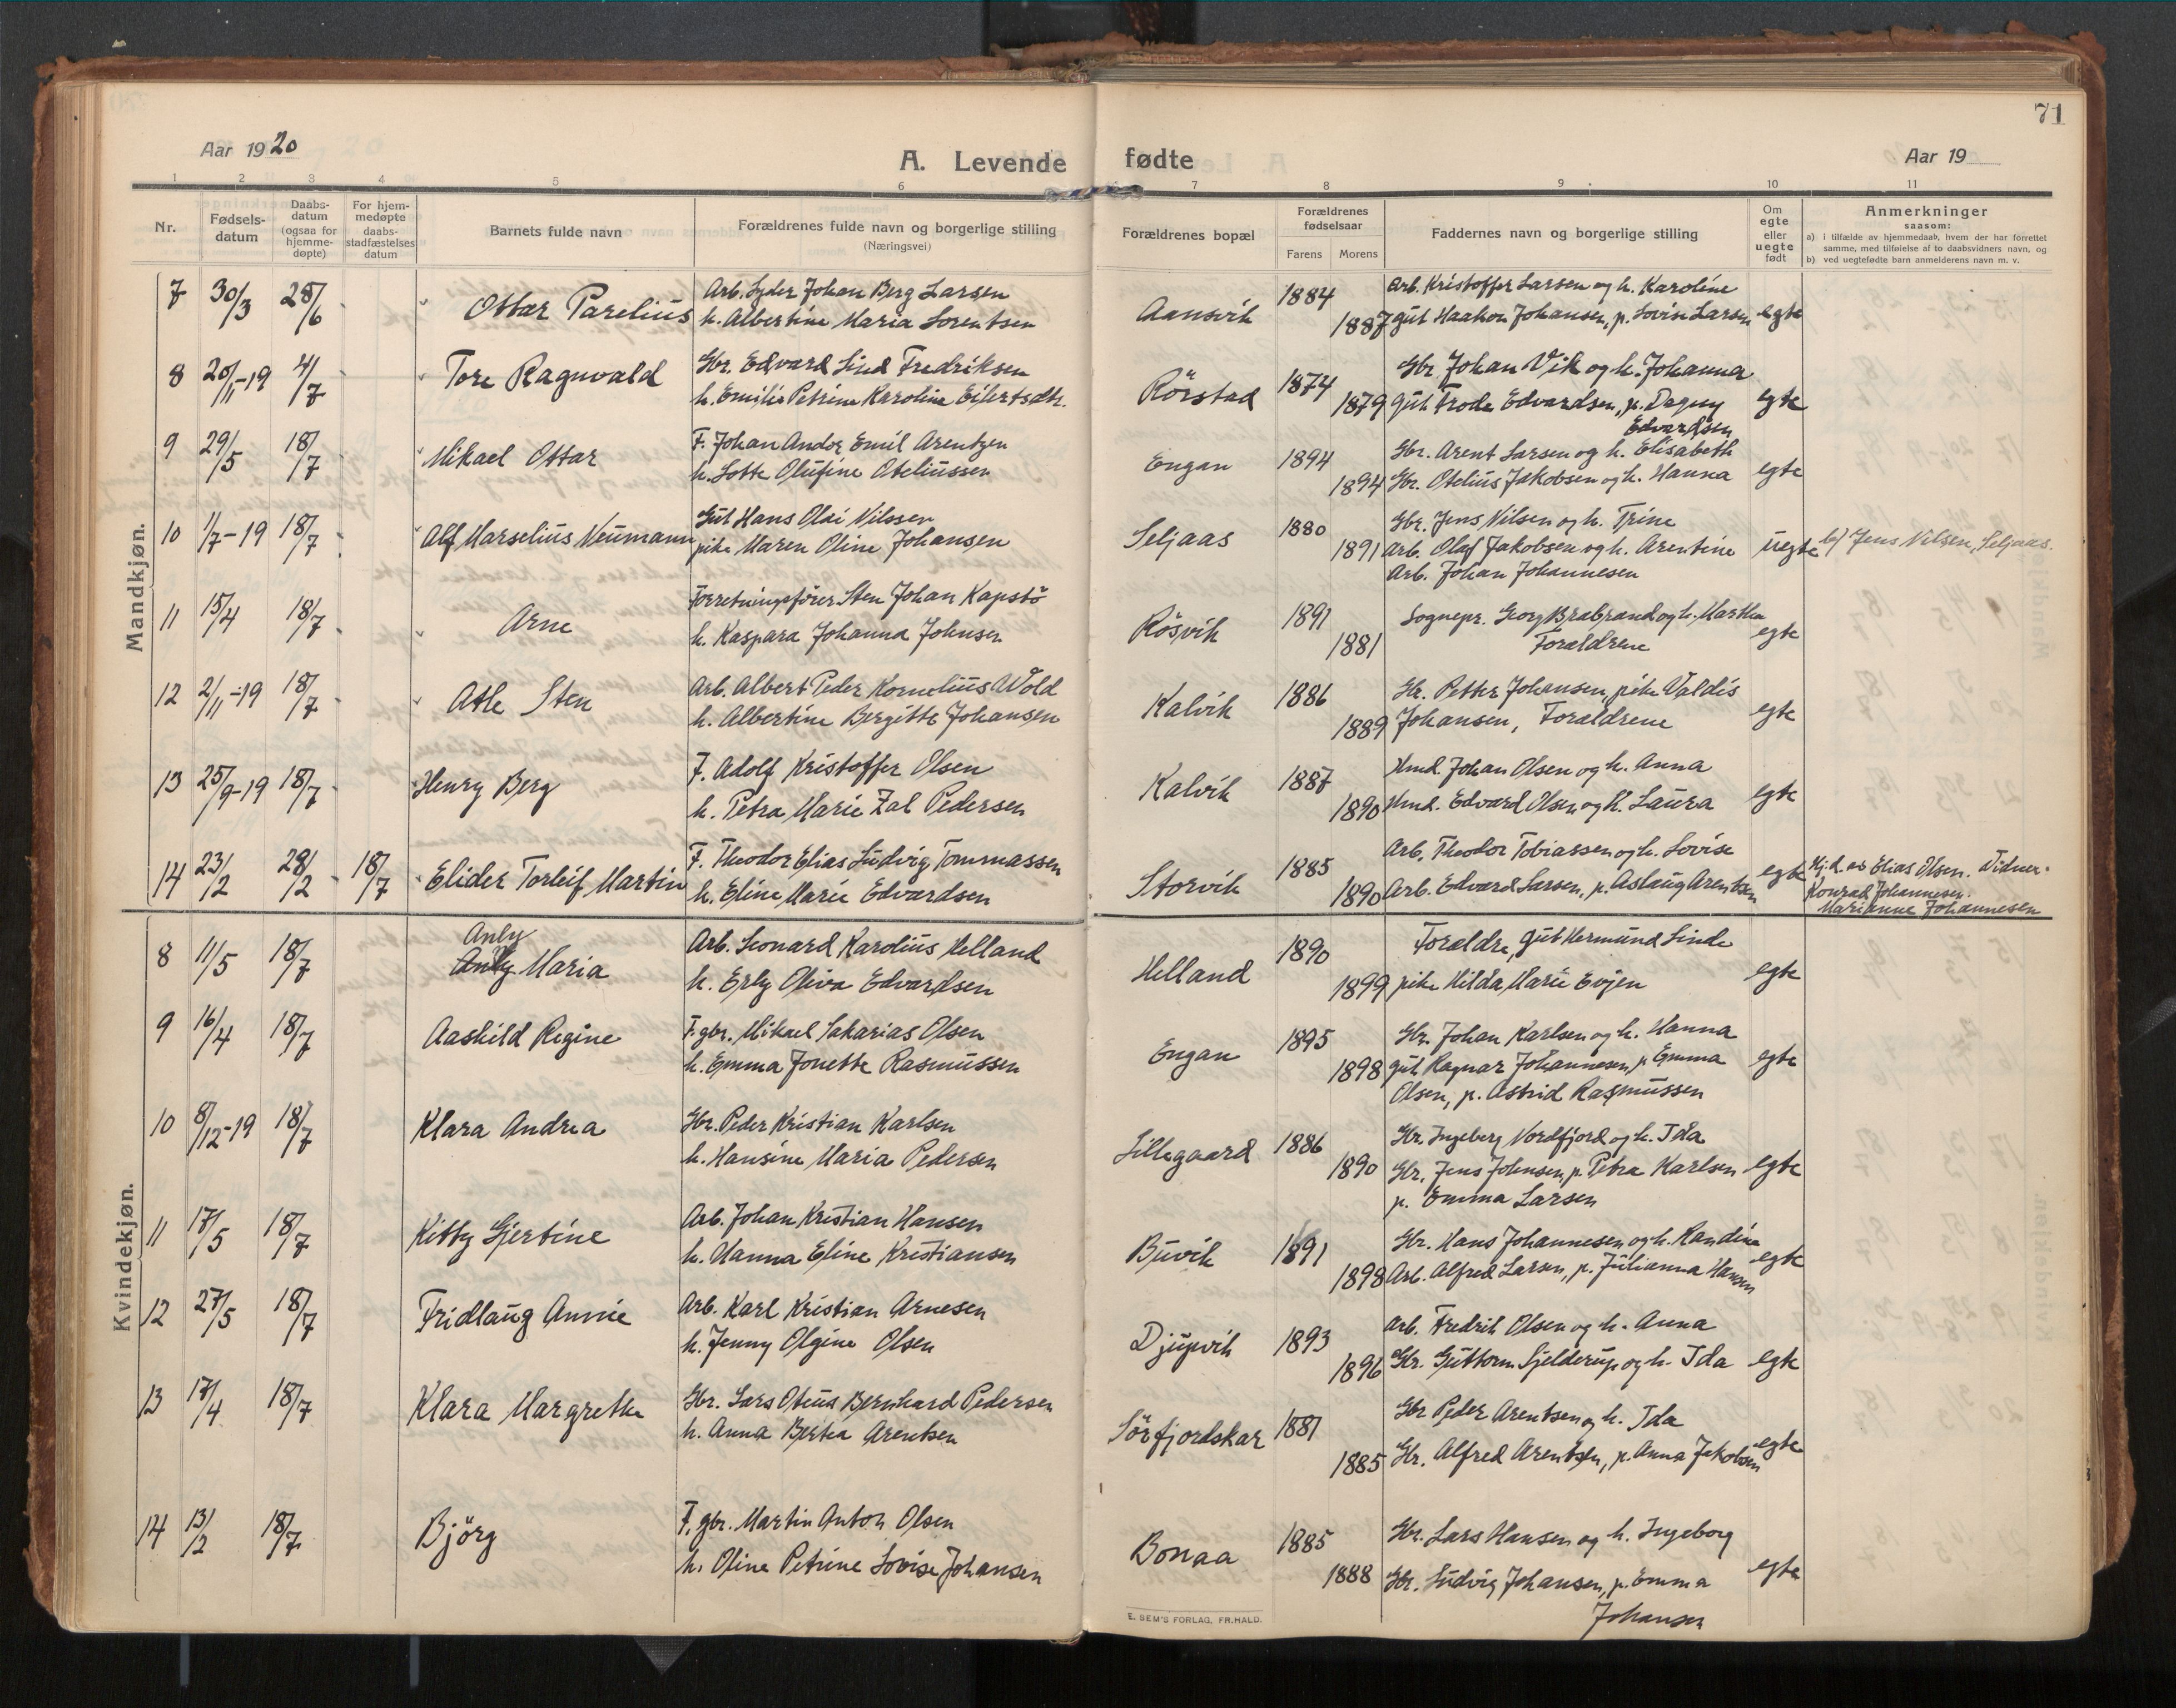 71
Aar 1920
A. Levende fødte
Aar 19
1 2 3 4 5 6 7 8 9 10 11
Nr.
Fødsels-
datum
Daabs-
datum
(ogsaa for
hjemme-
døpte)
For hjem-
medøpte
daabs-
stadfæstelses
datum
Barnets fulde navn
Forældrenes fulde navn og borgerlige stilling
(Næringsvei)
Forældrenes bopæl
Forældrenes
fødselsaar
Farens Morens
Faddernes navn og borgerlige stilling
Om
egte
eller
uegte
født
Anmerkninger
saasom:
a) i tilfælde av hjemmedaab, hvem der har forrettet
samme, med tilføielse af to daabsvidners navn, og
b) ved uegtefødte barn anmelderens navn m. v.
Mandkjøn.
7 30/3 28/6 Ottar Parelius Arb. Johan Berg Larsen Aansvik 1884 Arb. Kristoffer Larsen og h. Karoline
h. Albertine Maria Lorentsen 1887 gut Haakon Johansen, p. Lovise Larsen egte
8 20/11-19 4/7 Tore Ragnvald Gbr. Edvard Lind Fredriksen Rörstad 1874 Gbr. Johan Vik og h. Johanna
h. Emilie Petrine Karoline Eilertsdtr. 1879 gut Frode Edvardsen, p. Dagny egte
Edvardsen
9 29/5 18/7 Mikael Ottar F. Johan Andor Emil Arentzen Engan 1894 Gbr. Arent Larsen og h. Elisabeth
h. Lotte Olufine Oteliussen 1894 Gbr. Otelius Jakobsen og h. Hanna egte
10 1/7-19 18/7 Alf Marselius Neumann Gut Hans Olai Nilssen Seljaas 1880 Gbr. Jens Nilsen og h. Trine
pike Maren Oline Johansen 1891 Arb. Olaf Jakobsen og h. Arentine uegte b) Jens Nilsen, Seljaas.
Arb. Johan Johannesen
11 15/4 18/7 Arne Forretningsfører Sten Johan Kapstö Rösvik 1891 Sognepr. Georg Brabrand og h. Martha
h. Kaspara Johanna Johnsen 1881 Forældrene egte
12 2/11-19 18/7 Atle Sten Arb. Albert Peder Kornelius Wold Kalvik 1886 Gbr. Petter Johansen, pike Valdis
h. Albertine Bergitte Johansen 1889 Johansen, Forældrene egte
13 25/9-19 18/7 Henry Berg F. Adolf Kristoffer Olsen Kalvik 1887 Hmd. Johan Olsen og h. Anna
h. Petra Marie Zal Pedersen 1890 Hmd. Edvard Olsen og h. Laura egte
14 23/2 28/2 18/7 Elider Torleif Martin F. Theodor Elias Ludvig Tommassen Storvik 1885 Arb. Theodor Tobiassen og h. Lovise
h. Eline Marie Edvardsen 1890 Arb. Edvard Larsen, p. Aslaug Arentsen egte Hj.d. av Elias Olsen. Vidner.
Konrad Johannesen.
Marianne Johannesen
Kvindekjøn.
Anly
8 11/5 18/7 Anly Maria Arb. Leonard Karolius Helland Helland 1890 Forældre, gut Hermund Linde
h. Erly Oliva Edvardsen 1899 pike Hilda Marie Evjen egte
9 16/4 18/7 Aashild Regine F. gbr. Mikael Sakarias Olsen Engan 1895 Gbr. Johan Karlsen og h. Hanna
h. Emma Jonette Rasmussen 1898 gut Ragnar Johannesen, p. Emma egte
Olsen, p. Astrid Rasmussen
10 8/12-19 18/7 Klara Andrea Gbr. Peder Kristian Karlsen Lillegaard 1886 Gbr. Ingeberg Nordfjord og h. Ida
h. Hansine Maria Pedersen 1890 Gbr. Jens Johnsen, p. Petra Karlsen egte
p. Emma Larsen
11 17/5 18/7 Kitty Gjertine Arb. Johan Kristian Hansen Buvik 1891 Gbr. Hans Johannesen og h. Randine
h. Hanna Eline Kristiansen 1898 Arb. Alfred Larsen, p. Julianna Hansen egte
12 27/5 18/7 Fridlaug Annie Arb. Karl Kristian Arnesen Djupvik 1893 Arb. Fredrik Olsen og h. Anna
h. Jenny Olgine Olsen 1896 Gbr. Guttorm Sjelderup og h. Ida egte
13 17/4 18/7 Klara Margrethe Gbr. Lars Oteus Bernhard Pedersen Sörfjordskar 1881 Gbr Peder Arentsen og h. Ida
h. Anna Bertea Arentsen 1885 Gbr. Alfred Arentsen, p. Anna Jakobsen egte
14 13/2 18/7 Björg F. gbr. Martin Anton Olsen Bonaa 1885 Gbr. Lars Hansen og h. Ingeborg
h. Oline Petrine Lovise Johansen 1888 Gbr. Ludvig Johansen, p. Emma egte
Johansen
E. SEM'S FORLAG, FR.HALD.